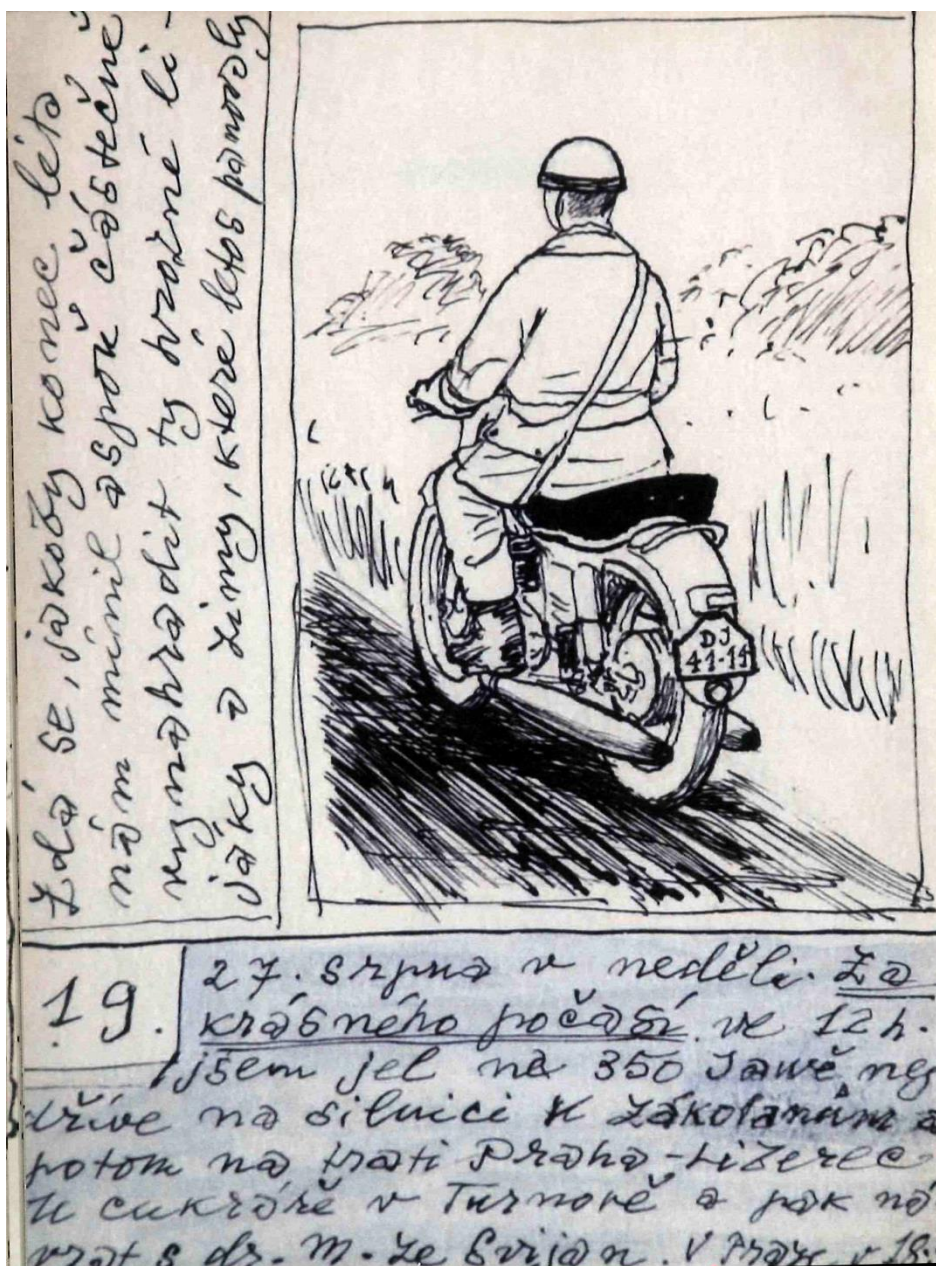 Zdá se, jakoby konec léta
nám mínil aspoň částečně
vynahradit ty vrozné li-
jáky a zimy, které letos panovaly
DJ
41-14
19.
27. srpna v neděli. Za
krásného počasí ve 12h.
jsem jel na 350 Jawě nej
dříve na silnici k Zákolanům a
potom na trati Praha-Liberec
k cukráře v Turnově a pak ná
vrat s dr. M. ze Svijan. V Praze v